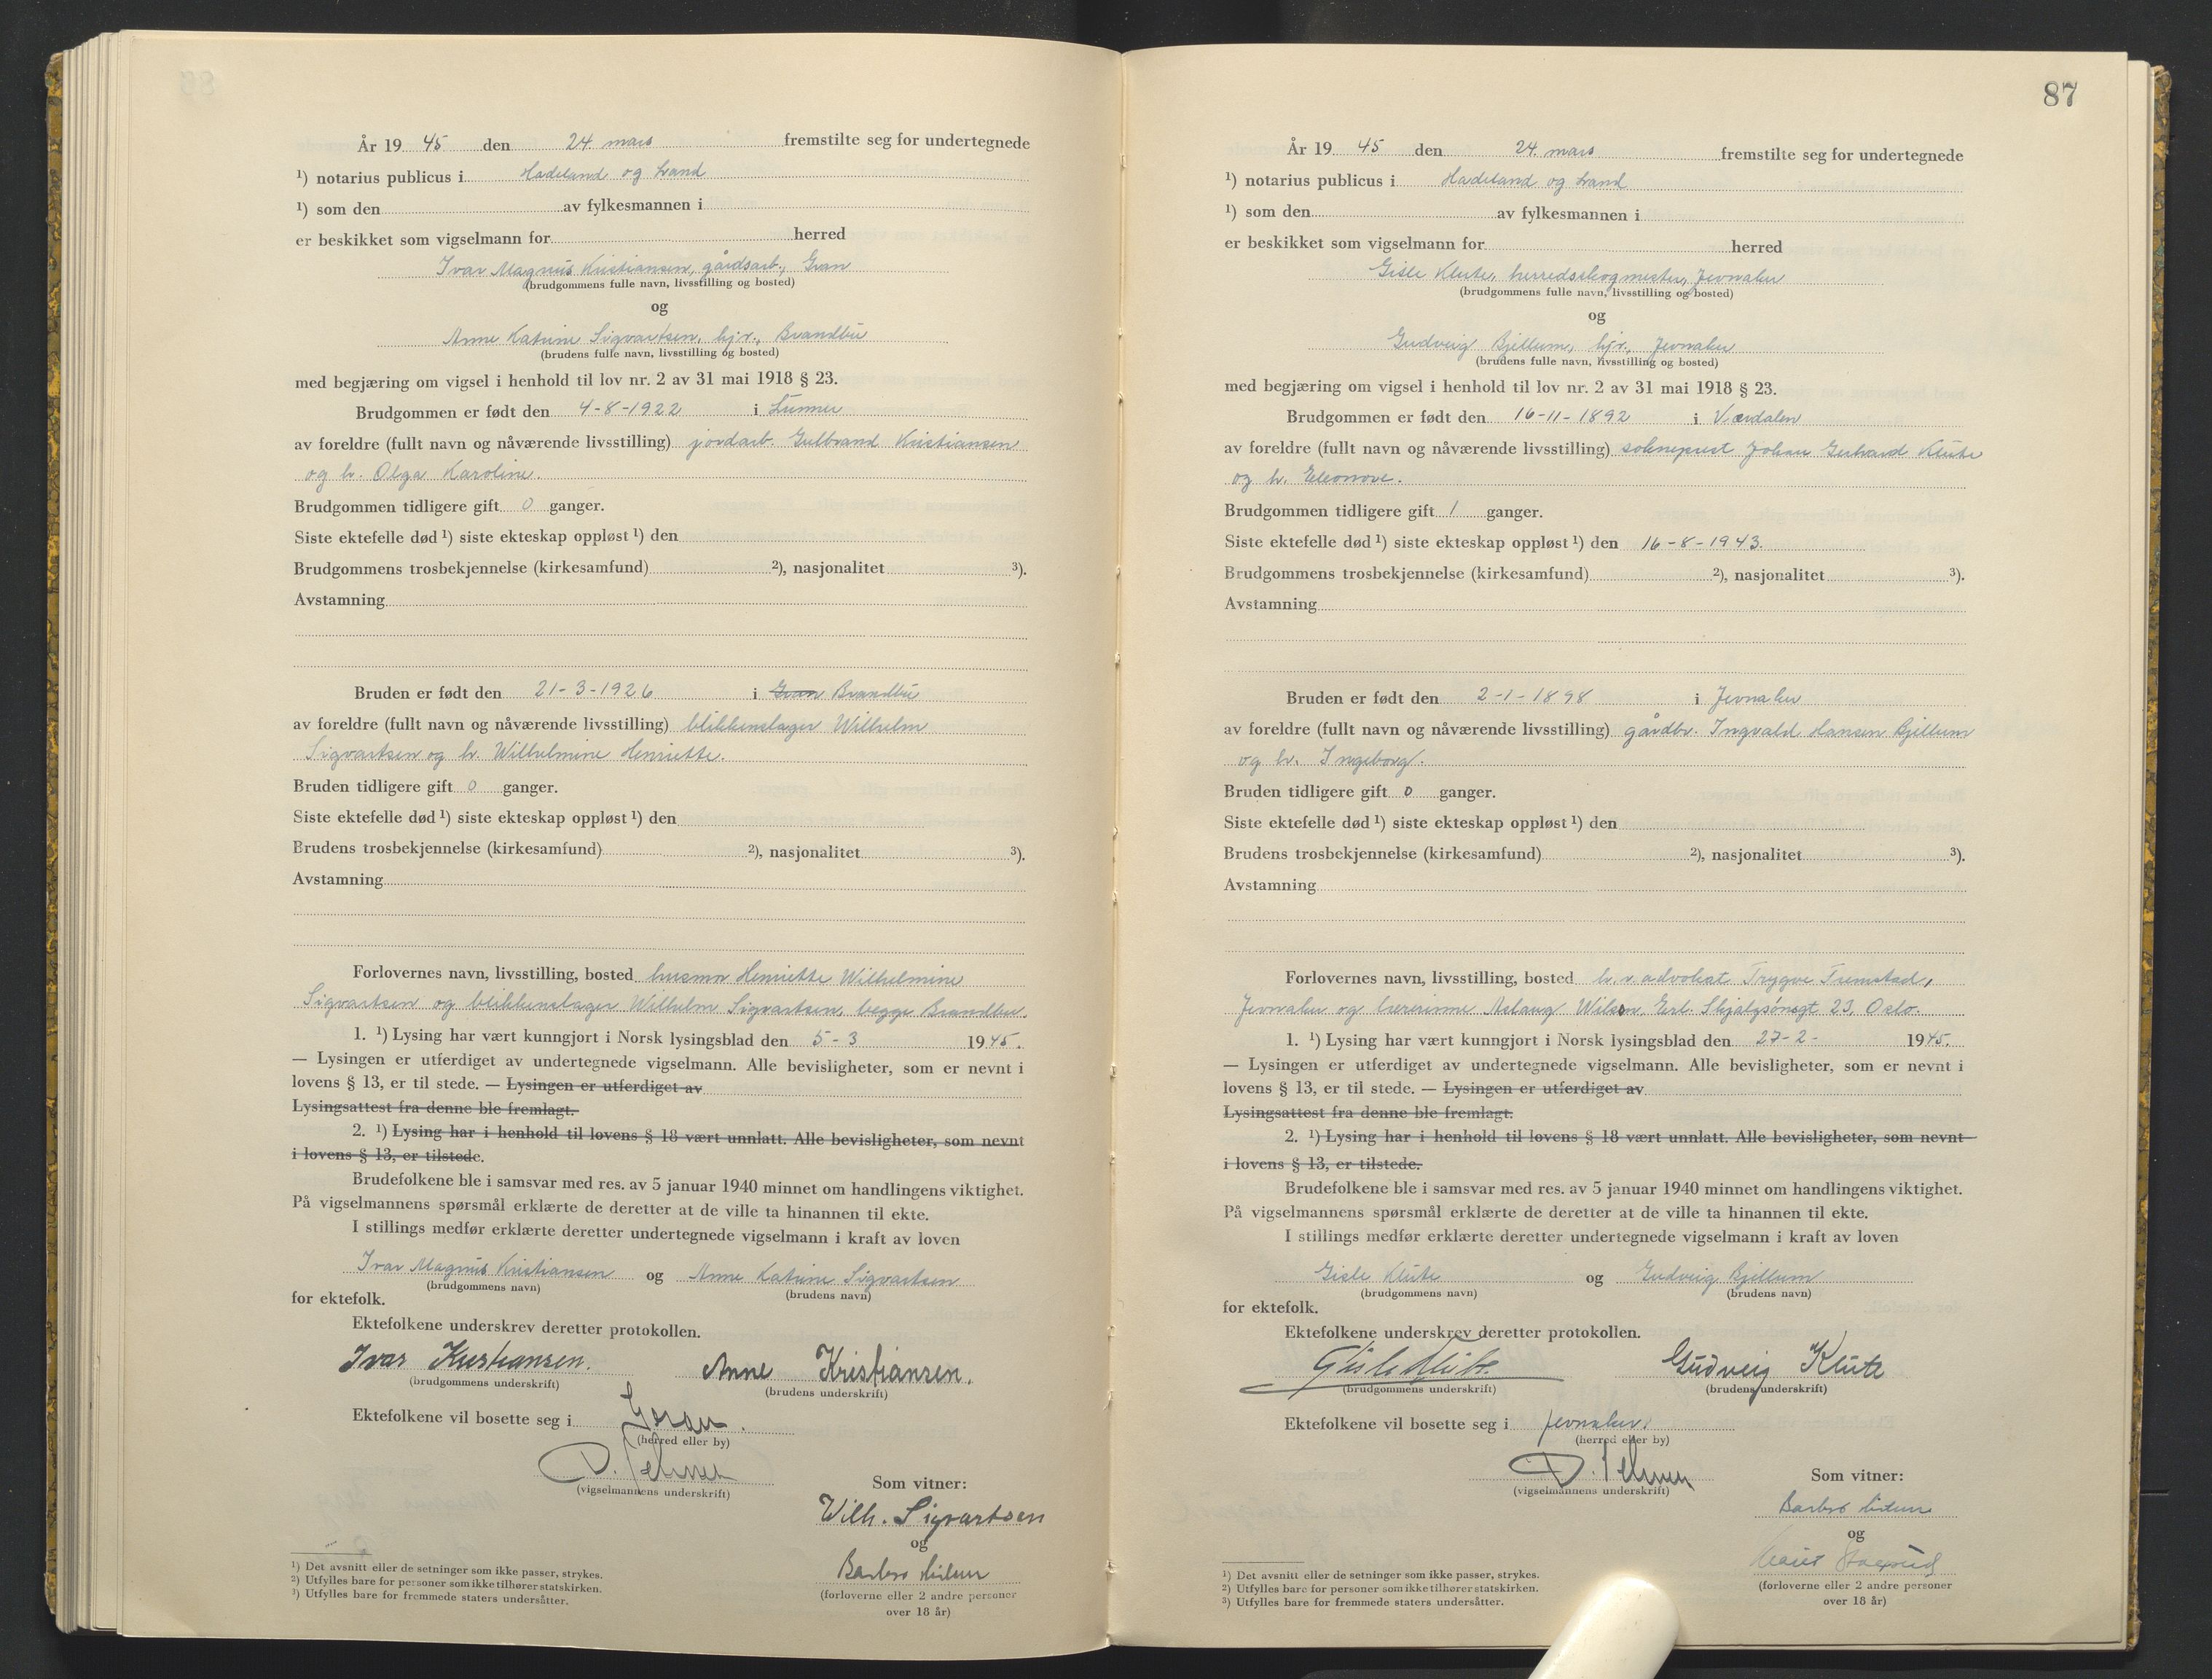 År 19 45 den 24. mars fremstilte seg for undertegnede
¹) notarius publicus i Hadeland og Land
¹) som den av fylkesmannen i
er beskikket som vigselmann for herred
Ivar Magnus Kristiansen, gårdsarb., Gran
(brudgommens fulle navn, livsstilling og bosted)
og
Anne Katrine Sigvartsen, hjv., Brandbu
(brudens fulle navn, livsstilling og bosted)
med begjæring om vigsel i henhold til lov nr. 2 av 31 mai 1918 § 23.
Brudgommen er født den 4-8-1922 i Lunner
av foreldre (fullt navn og nåværende livsstilling) jordarb. Gulbrand Kristiansen
og h. Olga Karoline.
Brudgommen tidligere gift 0 ganger.
Siste ektefelle død ¹) siste ekteskap oppløst ¹) den
Brudgommens trosbekjennelse (kirkesamfund) ²), nasjonalitet ³).
Avstamning
Bruden er født den 21-3-1926 i Gran Brandbu
av foreldre (fullt navn og nåværende livsstilling) blikkenslager Wilhelm
Sigvartsen og h. Wilhelmine Henriette.
Bruden tidligere gift 0 ganger.
Siste ektefelle død ¹) siste ekteskap oppløst ¹) den
Brudens trosbekjennelse (kirkesamfund) ²), nasjonalitet ³).
Avstamning
Forlovernes navn, livsstilling, bosted husmor Henriette Wilhelmine
Sigvartsen og blikkenslager Wilhelm Sigvartsen, begge Brandbu.
1. ¹) Lysing har vært kunngjort i Norsk lysingsblad den 5-3 1945.
— Lysingen er utferdiget av undertegnede vigselmann. Alle bevisligheter, som er nevnt i
lovens § 13, er til stede. — Lysingen er utferdiget av
Lysingsattest fra denne ble fremlagt.
2. ¹) Lysing har i henhold til lovens § 18 vært unnlatt. Alle bevisligheter, som nevnt
i lovens § 13, er tilstede.
Brudefolkene ble i samsvar med res. av 5 januar 1940 minnet om handlingens viktighet.
På vigselmannens spørsmål erklærte de deretter at de ville ta hinannen til ekte.
I stillings medfør erklærte deretter undertegnede vigselmann i kraft av loven
Ivar Magnus Kristiansen og Anne Katrine Sigvartsen
(brudgommens navn) (brudens navn)
for ektefolk.
Ektefolkene underskrev deretter protokollen.
Ivar Kristiansen. Anne Kristiansen.
(brudgommens underskrift) (brudens underskrift)
Ektefolkene vil bosette seg i Gran.
(herred eller by)
D.
(vigselmannens underskrift)
Som vitner:
Wilh. Sigvartsen
og
Barbro
(forloverne eller 2 andre personer
over 18 år)
¹) Det avsnitt eller de setninger som ikke passer, strykes.
²) Utfylles bare for personer som ikke tilhører statskirken.
³) Utfylles bare for fremmede staters undersåtter.
87
År 19 45 den 24. mars fremstilte seg for undertegnede
¹) notarius publicus i Hadeland og Land
¹) som den av fylkesmannen i
er beskikket som vigselmann for herred
Gisle Klute, herredsskogmester, Jevnaker
(brudgommens fulle navn, livsstilling og bosted)
og
Gudveig Bjellum, hjv., Jevnaker
(brudens fulle navn, livsstilling og bosted)
med begjæring om vigsel i henhold til lov nr. 2 av 31 mai 1918 § 23.
Brudgommen er født den 16-11-1892 i Værdalen
av foreldre (fullt navn og nåværende livsstilling) sokneprest Johan Gerhard Klute
og h. Eleonore.
Brudgommen tidligere gift 1 ganger.
Siste ektefelle død ¹) siste ekteskap oppløst ¹) den 16-8-1943.
Brudgommens trosbekjennelse (kirkesamfund) ²), nasjonalitet ³).
Avstamning
Bruden er født den 2-1-1898 i Jevnaker
av foreldre (fullt navn og nåværende livsstilling) gårdbr. Ingvald Hansen Bjellum
og h. Ingeborg.
Bruden tidligere gift 0 ganger.
Siste ektefelle død ¹) siste ekteskap oppløst ¹) den
Brudens trosbekjennelse (kirkesamfund) ²), nasjonalitet ³).
Avstamning
Forlovernes navn, livsstilling, bosted h.r.advokat Trygve Tremstad,
Jevnaker og lærerinne Aslaug Wilson, Erl. Skjalgsønsgt 23, Oslo.
1. ¹) Lysing har vært kunngjort i Norsk lysingsblad den 27-2- 1945.
— Lysingen er utferdiget av undertegnede vigselmann. Alle bevisligheter, som er nevnt i
lovens § 13, er til stede. — Lysingen er utferdiget av
Lysingsattest fra denne ble fremlagt.
2. ¹) Lysing har i henhold til lovens § 18 vært unnlatt. Alle bevisligheter, som nevnt
i lovens § 13, er tilstede.
Brudefolkene ble i samsvar med res. av 5 januar 1940 minnet om handlingens viktighet.
På vigselmannens spørsmål erklærte de deretter at de ville ta hinannen til ekte.
I stillings medfør erklærte deretter undertegnede vigselmann i kraft av loven
Gisle Klute og Gudveig Bjellum
(brudgommens navn) (brudens navn)
for ektefolk.
Ektefolkene underskrev deretter protokollen.
Gisle Klute. Gudveig Klute
(brudgommens underskrift) (brudens underskrift)
Ektefolkene vil bosette seg i Jevnaker.
(herred eller by)
D.
(vigselmannens underskrift)
Som vitner:
Barbro
og
(forloverne eller 2 andre personer
over 18 år)
¹) Det avsnitt eller de setninger som ikke passer, strykes.
²) Utfylles bare for personer som ikke tilhører statskirken.
³) Utfylles bare for fremmede staters undersåtter.